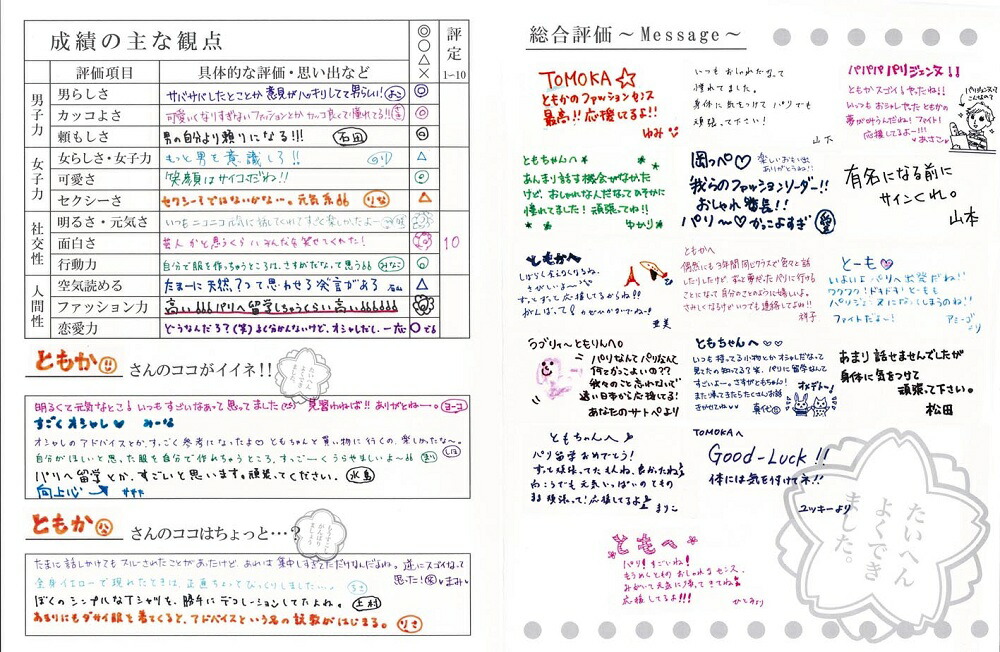 成績の主な観点
◎○△×
評定
1~10
評価項目
具体的な評価・思い出など
男子力
男らしさ
サバサバしたとことか意見がハッキリしてて男らしい! よこ
◎
カッコよさ
可愛くなりすぎないファッションとかカッコ良くて憧れてる!!
◎
頼もしさ
男の自分より頼りになる!!! 石田
◎
女子力
女らしさ・女子力
もっと男を意識しろ!!
△
可愛さ
笑顔はサイコだね!!
○
セクシーさ
セクシーではないかな… 元気系 りな
△
社交性
明るさ・元気さ
いつもニコニコ元気に話しかけてくれてすごく楽しかったよー
面白さ
芸人かと思うくらいみんなを笑せてくれた!
10
行動力
自分で服を作っちゃうところは、さすがだなって思う みなこ
◎
人間性
空気読める
たまーに天然?って思わせる発言がある 石山
△
ファッション力
高い パリへ留学しちゃうくらい高い
恋愛力
どうなんだろ?(笑)よく分かんないけど、オシャレだし、一応○でる
ともか さんのココがイイネ!!
明るくて元気なところ いつもすごいなあって思ってました(笑) 見習わねば!! ありがとねー。ヨーコ
すごくオシャレ♥ みーな
オシャレのアドバイスとか、すっごく参考になったよ♡ ともちゃんと買い物に行くの、楽しかったな~。
自分がほしいと思った服を自分で作れちゃうところ、すっごーくうらやましいよ~
パリへ留学とか、すごいと思います。頑張ってください。 水島
向上心
ともか さんのココはちょっと…?
たまに話しかけてもスルーされたことがあったけど、あれは集中しすぎてただけなんだよねっ 逆にスゴイなって
思った! まみ
全身イエローで現れたときは、正直ちょっとびっくりしました…。
ぼくのシンプルなTシャツを、勝手にデコレーションしてたよね。 上村
あまりにもダサイ服を着てくると、アドバイスという名の説教がはじまる。 りさ
総合評価~Message~
TOMOKA☆
ともかのファッションセンス
最高!!応援してるよ!!
ゆみ
いつもおしゃれだなって
憧れてました。
身体に気をつけてパリでも
頑張って下さい!
山本
パパパパリジェンヌ!!
ともかスゴイやったね!!
いつもおしゃれだったともかの
夢が叶うんだね! ファイト!
応援してるよー!!!
あさこ
パリジェンヌってこんなの?
ともちゃんへ
あんまり話す機会がなかった
けど、おしゃれなんだなってひそかに
憧れてました! 頑張ってね!!
ゆかり
岡っぺ♡
楽しい思い出
ありがとうね!!
我らのファッションリーダー!!
おしゃれ番長!!
パリ~♡かっこよすぎ
有名になる前に
サインくれ。
山本
ともかへ
しばらく会えなくなるね。
さびしいよ~
ずっとずっと応援してるからね!!
がんばって!
亜美
ともかへ
偶然にも3年間同じクラスで色々と話
したりしたけど、ずっと夢だったパリに行ける
ことになって自分のことのように嬉しいよ。
さみしくなるけどいつでも連絡してよね!!
祥子
とーも♥
いよいよパリへ出発だね!!
ワクワク! ドキドキ! とーもも
パリジェンヌになってしまうのね!!
ファイトだよー!
アミーゴ
ラブリーともりんへ
パリなんてパリなんて
何かかっこよい??
我々のこと忘れないで
遠い日本から応援してる!
あなたのサトペより
ともちゃんへ
いつも持ってる小物とかオシャレだなって
見てたの知ってる? 笑、パリに留学なんて
すごいよー。さすがともちゃん!
また帰ってきたらたくさんお話
きかせてね♥♥
真代
あまり話せませんでしたが
身体に気をつけて
頑張って下さい。
松田
ともちゃんへ
パリ留学おめでとう!
ずっと頑張ってたもんね、良かったね
向こうでも元気いっぱいのともの
まま頑張って! 応援してるよ
まりこ
TOMOKAへ
Good-Luck!!
体には気を付けてネ!!
ユッキーより
ともへ
パリ! すごいね!
もうめっちゃおしゃれなセンス
みがいて元気に帰ってきてね
応援してるよ!!!
ひとみより
たいへん
よくでき
ました。